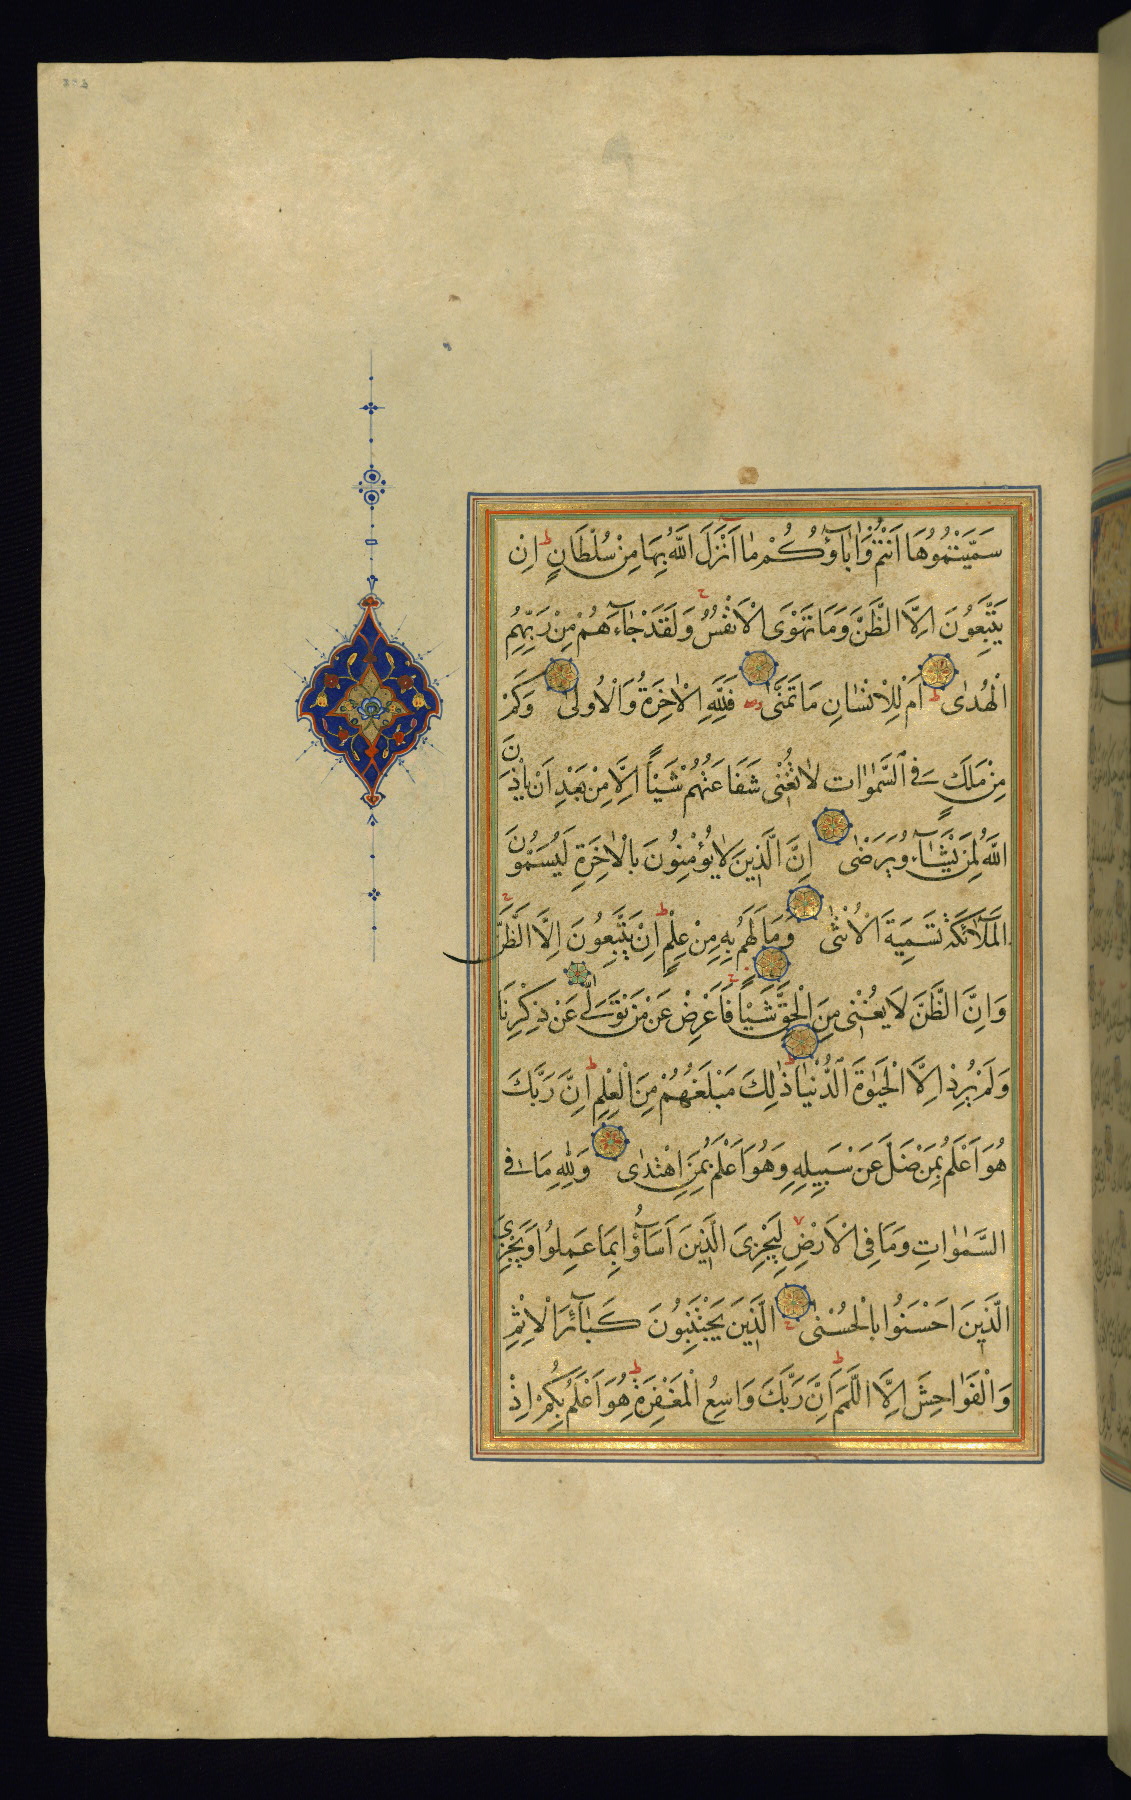 سَمَّيْتُمُوهَا اَنْتُمْ وَاٰبَآؤُكُمْ مٰا اَنْزَلَ اللّٰهُ بِهَا مِنْ سُلْطَانٍ ط اِنْ
يَتَّبِعُونَ اِلَّا الظَّنَّ وَمَا تَهْوَى الْاَنْفُسُ ج وَلَقَدْ جَآءَهُمْ مِنْ رَبِّهِمُ
الْهُدٰى ط اَمْ لِلْاِنْسَانِ مَا تَمَنّٰى فَلِلّٰهِ الْاٰخِرَةُ وَالْاُولٰى وَكَمْ
مِنْ مَلَكٍ فِي السَّمٰوٰاتِ لَا تُغْنِي شَفَاعَتُهُمْ شَيْئًا اِلَّا مِنْ بَعْدِ اَنْ يَأْذَنَ
اللّٰهُ لِمَنْ يَشَآءُ وَيَرْضٰى اِنَّ الَّذِينَ لَا يُؤْمِنُونَ بِالْاٰخِرَةِ لَيُسَمُّونَ
الْمَلٰٓئِكَةَ تَسْمِيَةَ الْاُنْثٰى وَمَا لَهُمْ بِهِ مِنْ عِلْمٍ ط اِنْ يَتَّبِعُونَ اِلَّا الظَّنَّ ج
وَاِنَّ الظَّنَّ لَا يُغْنِي مِنَ الْحَقِّ شَيْئًا ج فَاَعْرِضْ عَنْ مَنْ تَوَلّٰى عَنْ ذِكْرِنَا
وَلَمْ يُرِدْ اِلَّا الْحَيٰوةَ الدُّنْيَا ط ذٰلِكَ مَبْلَغُهُمْ مِنَ الْعِلْمِ ط اِنَّ رَبَّكَ
هُوَ اَعْلَمُ بِمَنْ ضَلَّ عَنْ سَبِيلِهِ وَهُوَ اَعْلَمُ بِمَنِ اهْتَدٰى وَلِلّٰهِ مَا فِي
السَّمٰوٰاتِ وَمَا فِي الْاَرْضِ لا لِيَجْزِيَ الَّذِينَ اَسَآؤُا بِمَا عَمِلُوا وَيَجْزِيَ
الَّذِينَ اَحْسَنُوا بِالْحُسْنٰى ج الَّذِينَ يَجْتَنِبُونَ كَبَآئِرَ الْاِثْمِ
وَالْفَوَاحِشَ اِلَّا اللَّمَمَ ط اِنَّ رَبَّكَ وَاسِعُ الْمَغْفِرَةِ ط هُوَ اَعْلَمُ بِكُمْ اِذْ